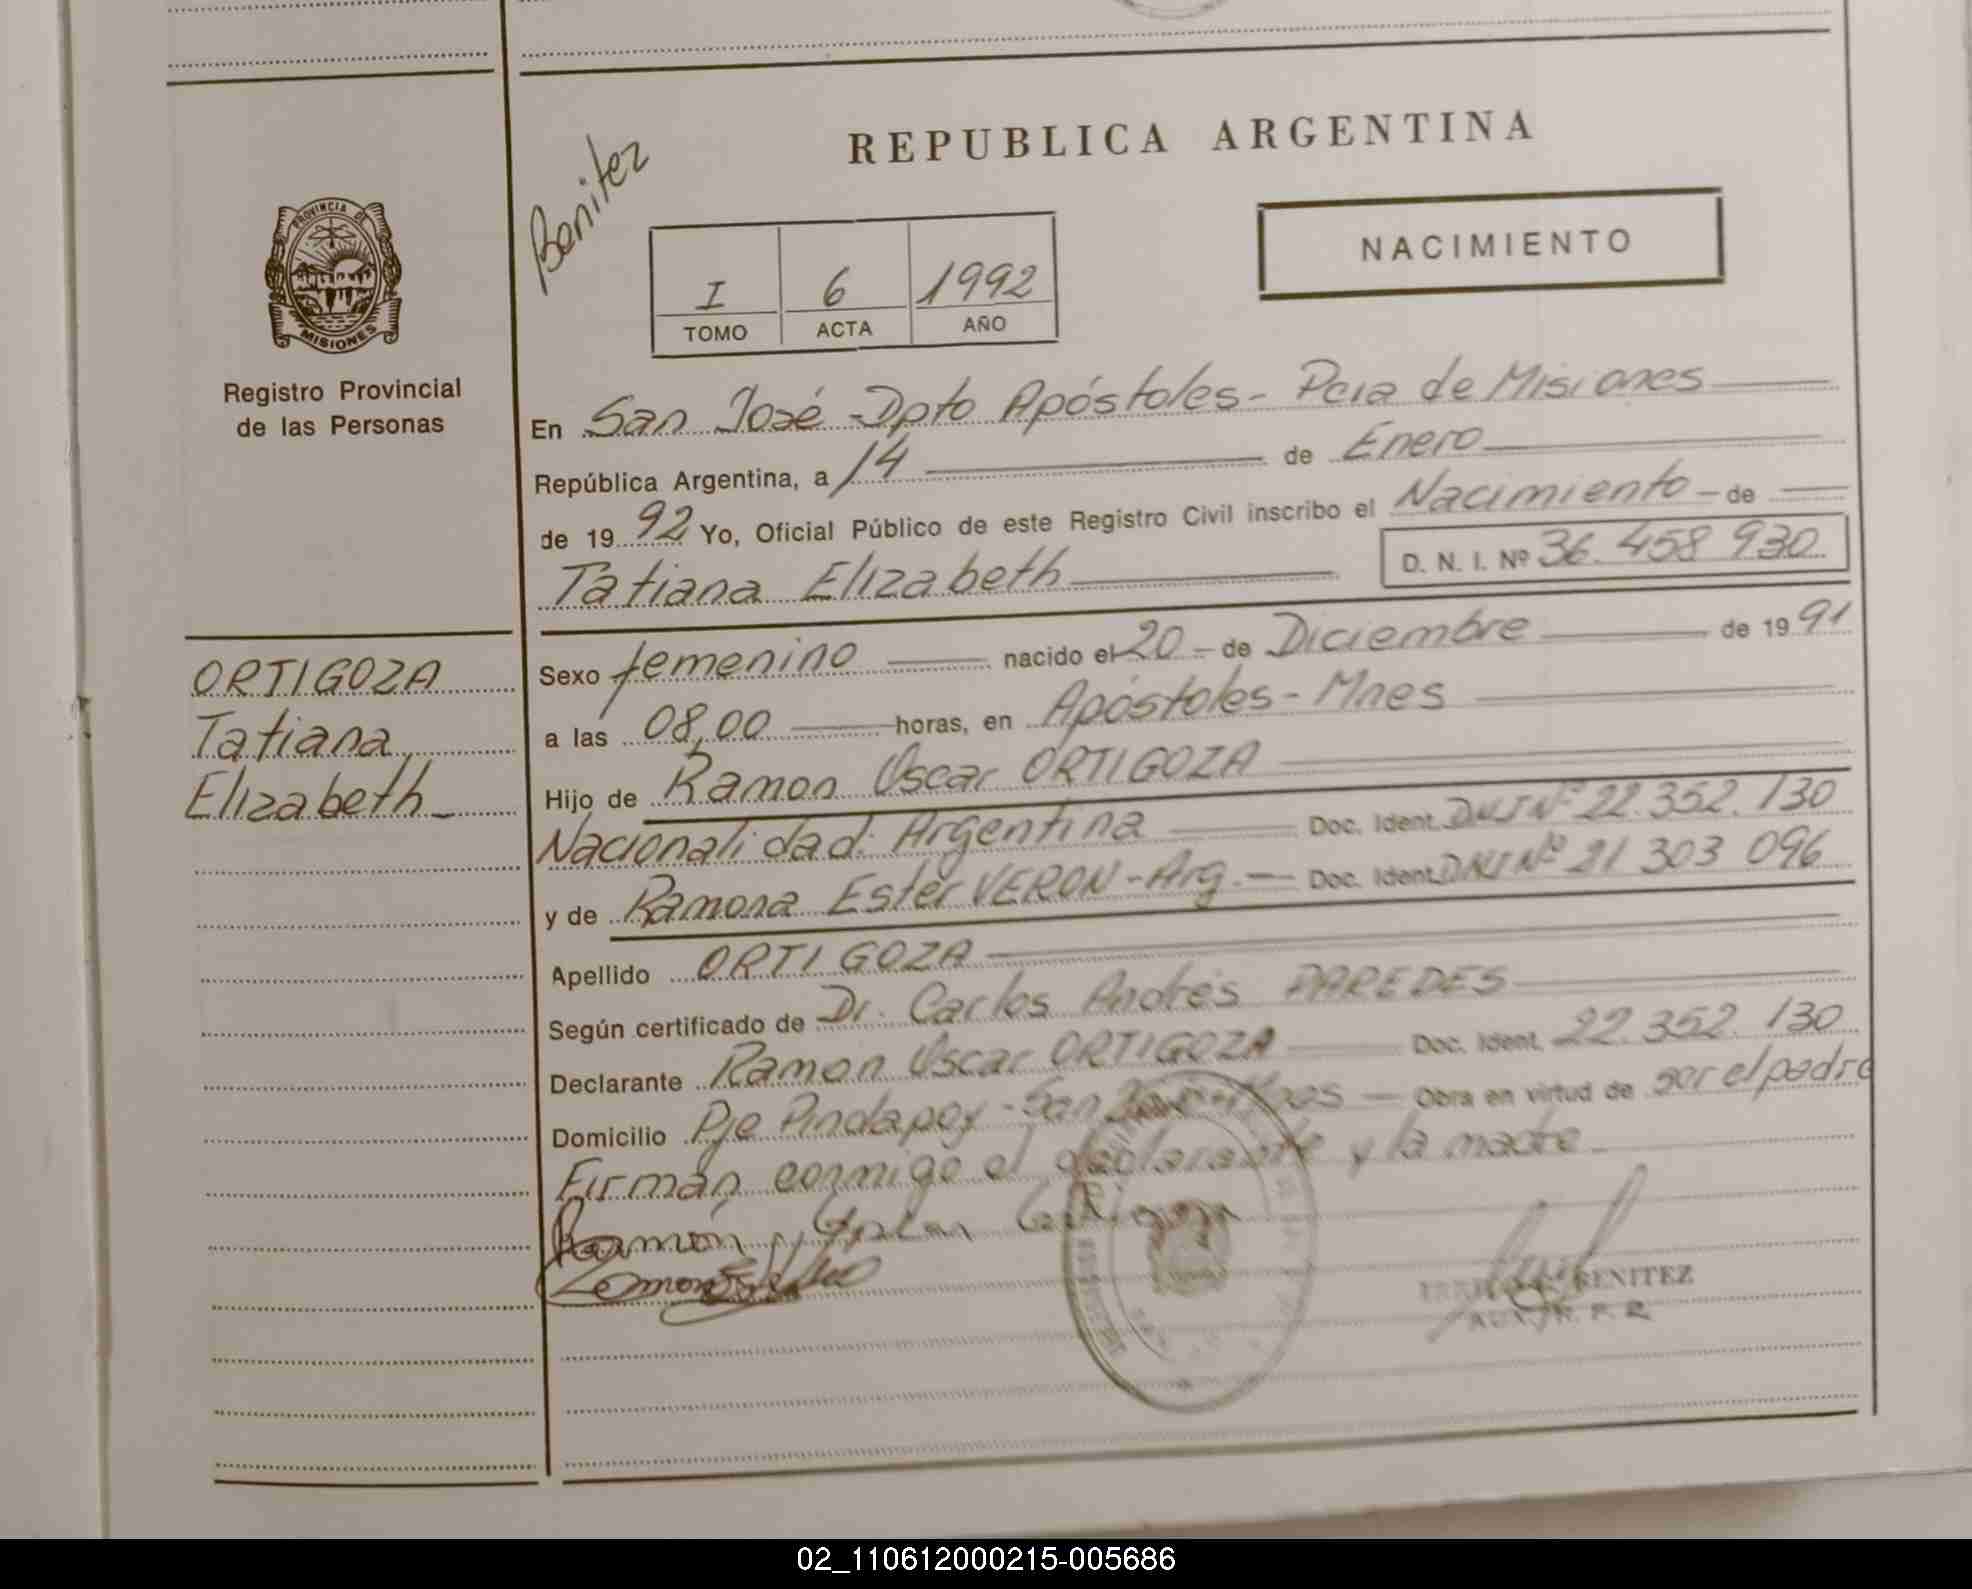 REPUBLICA ARGENTINA
Benitez
PROVINCIA DE
MISIONES
Registro Provincial
de las Personas
I 6 1992
TOMO ACTA AÑO
NACIMIENTO
En San José - Dpto Apóstoles - Pcia de Misiones
República Argentina, a 14 de Enero
de 19 92 Yo, Oficial Público de este Registro Civil inscribo el Nacimiento de
Tatiana Elizabeth D. N. I. Nº 36.458 930
ORTIGOZA
Tatiana
Elizabeth
Sexo femenino nacido el 20 de Diciembre de 19 91
a las 08,00 horas, en Apóstoles - Mnes
Hijo de Ramon Oscar ORTIGOZA
Nacionalidad: Argentina Doc. Ident. DNI Nº 22.352.130
y de Ramona Ester VERON - Arg. Doc. Ident. DNI Nº 21 303 096
Apellido ORTIGOZA
Según certificado de Dr. Carlos Andrés PAREDES
Declarante Ramon Oscar ORTIGOZA Doc. Ident. 22.352.130
Domicilio Pje Pindapoy - San Obra en virtud de ser el padre
Firman conmigo el declarante y la madre
Ramón
BENITEZ
02_110612000215-005686